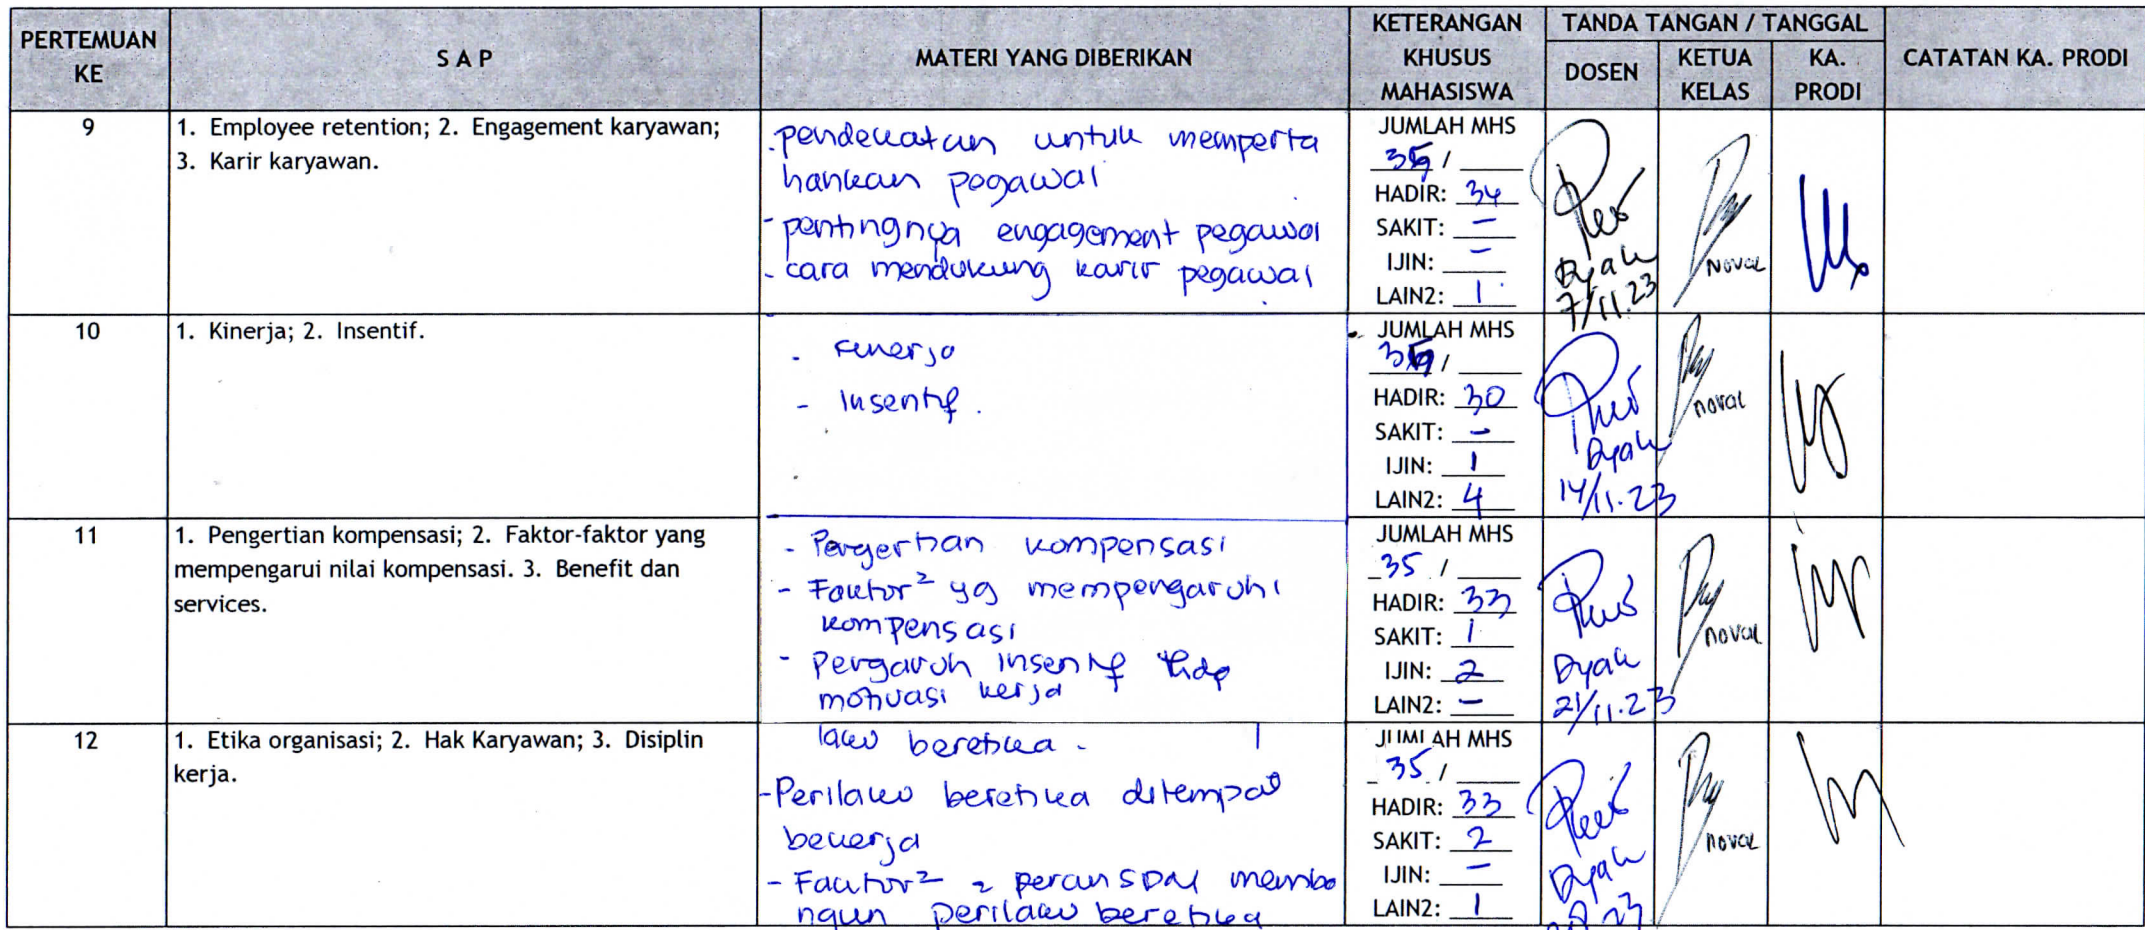 PERTEMUAN KE
S A P
MATERI YANG DIBERIKAN
KETERANGAN KHUSUS MAHASISWA
TANDA TANGAN / TANGGAL
DOSEN
KETUA KELAS
KA. PRODI
CATATAN KA. PRODI
9
1. Employee retention; 2. Engagement karyawan;
3. Karir karyawan.
- pendekatan untuk memperta
hankan pegawai
- pentingnya engagement pegawai
- cara mendukung karir pegawai
JUMLAH MHS
35 /
HADIR: 34
SAKIT: -
IJIN: -
LAIN2: 1
Dyah
7/11.23
Noval
10
1. Kinerja; 2. Insentif.
- Kinerja
- Insentif.
JUMLAH MHS
35 /
HADIR: 30
SAKIT: -
IJIN: 1
LAIN2: 4
Dyah
14/11.23
noval
11
1. Pengertian kompensasi; 2. Faktor-faktor yang
mempengarui nilai kompensasi. 3. Benefit dan
services.
- Pengertian kompensasi
- Faktor² yg mempengaruhi
kompensasi
- Pengaruh insentif thdp
motivasi kerja
JUMLAH MHS
35 /
HADIR: 33
SAKIT: 1
IJIN: 2
LAIN2: -
Dyah
21/11.23
noval
12
1. Etika organisasi; 2. Hak Karyawan; 3. Disiplin
kerja.
laku beretika.
- Perilaku beretika ditempat
bekerja
- Faktor² peran SDM memba
ngun perilaku beretika
JUMLAH MHS
35 /
HADIR: 33
SAKIT: 2
IJIN: -
LAIN2: 1
Dyah
noval